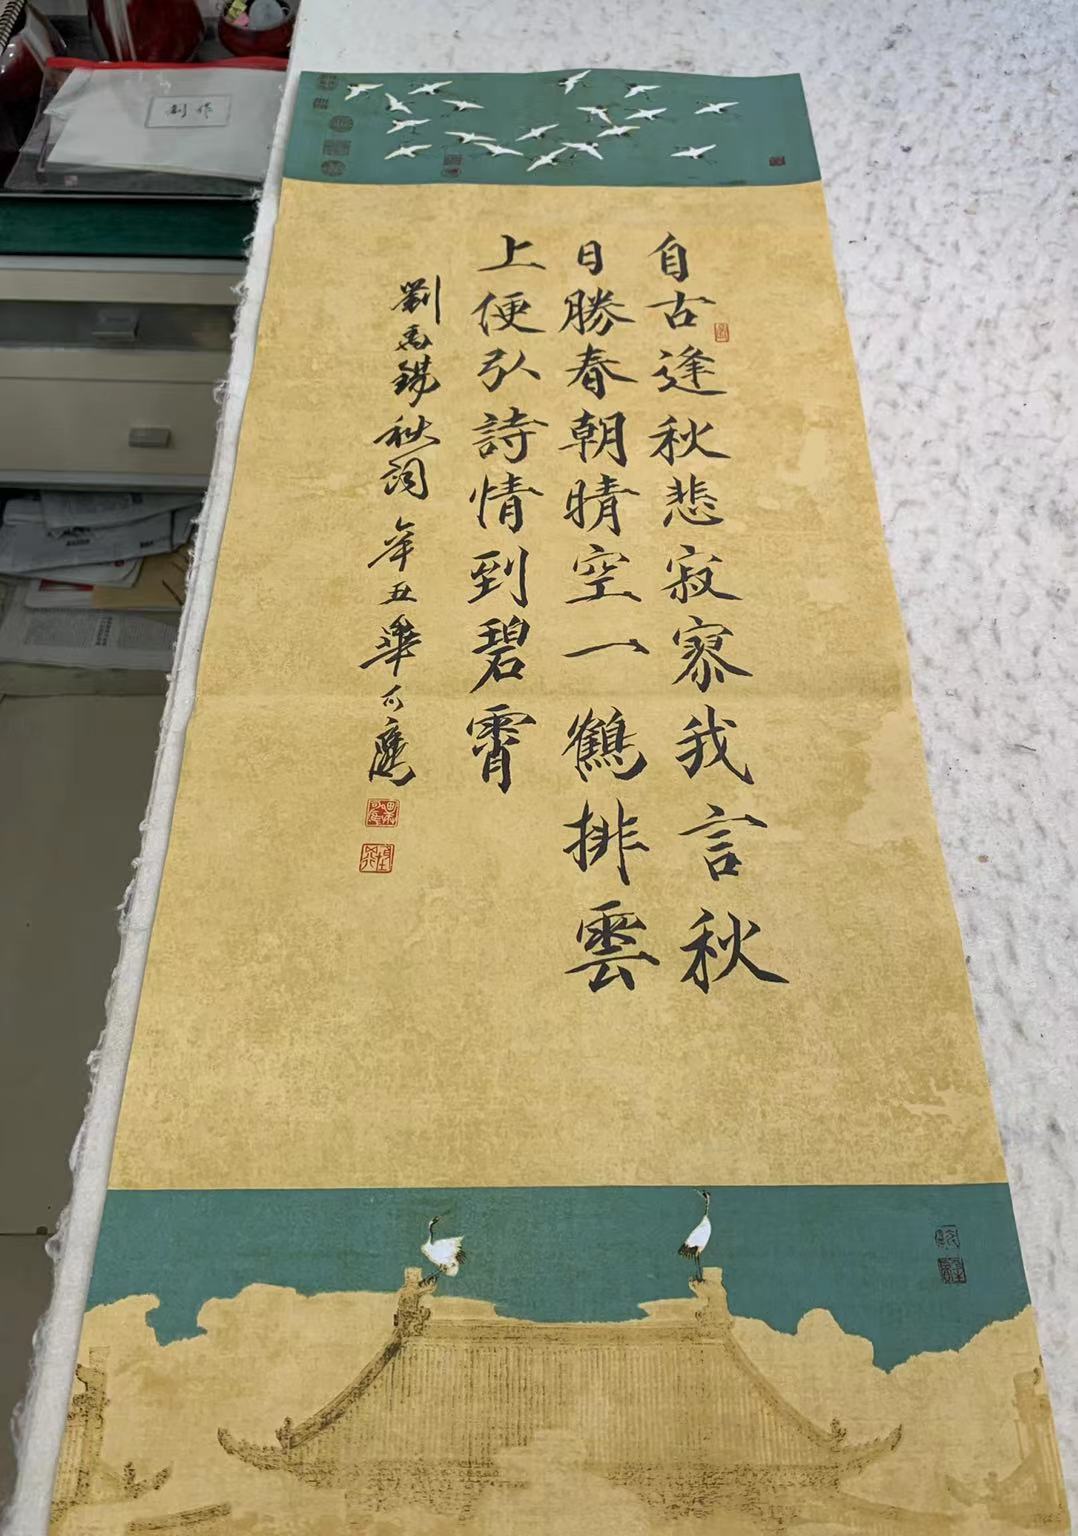 自古逢秋悲寂寥我言秋
日勝春朝晴空一鶴排雲
上便引詩情到碧霄
劉禹錫秋詞 辛丑
创作